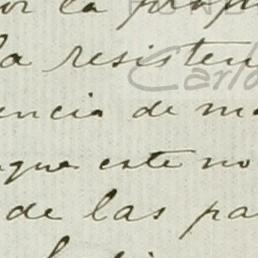 or la prop
la resisten
encia de ma
que este no
de las pa
Carlo